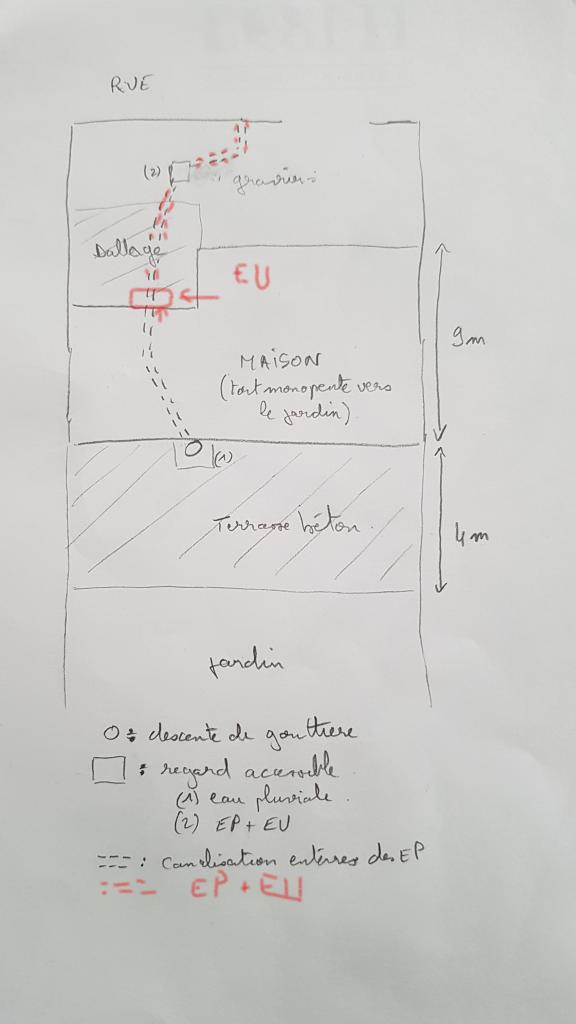 RUE
(2)
graviers
Dallage
EU
9m
MAISON
(toit monopente vers
le jardin)
(1)
Terrasse béton.
4m
jardin
O : descente de gouttiere
: regard accessible
(1) eau pluviale.
(2) EP + EU
=== : Canalisation entérrées des EP
:=== EP + EU